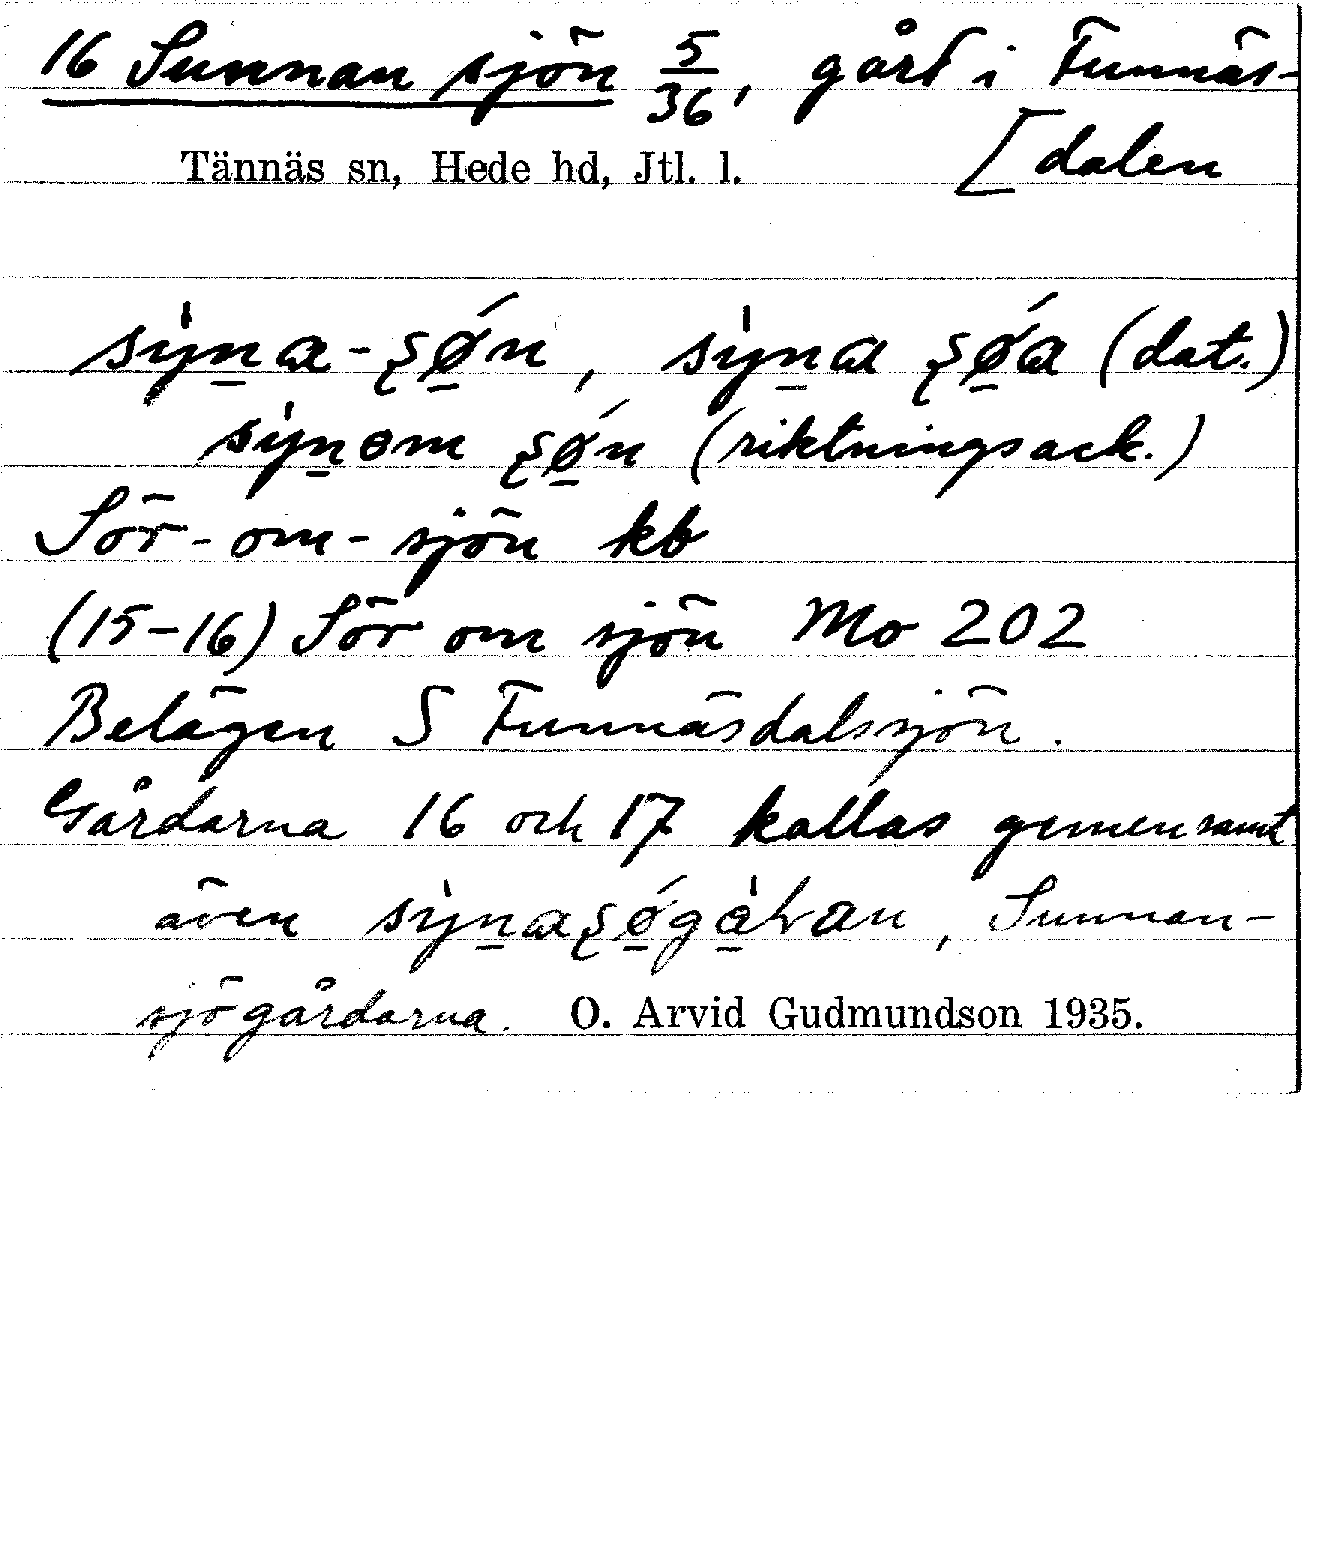 16 Sunnan sjön 5/36, gård i Funnäs-
[dalen
Tännäs sn, Hede hd, Jtl. l.
sỳn̲a-ʂǿ̲n, sỳn̲a ʂǿ̲a (dat.)
sỳn̲om ʂǿ̲n (riktningsack.)
Sör-om-sjön kb
(15-16) Sör om sjön Mo 202
Belägen S Funnäsdalssjön.
Gårdarna 16 och 17 kallas gemensamt
även sỳn̲aʂǿ̲ga̲̍ɽan, Sunnan-
sjögårdarna. O. Arvid Gudmundson 1935.